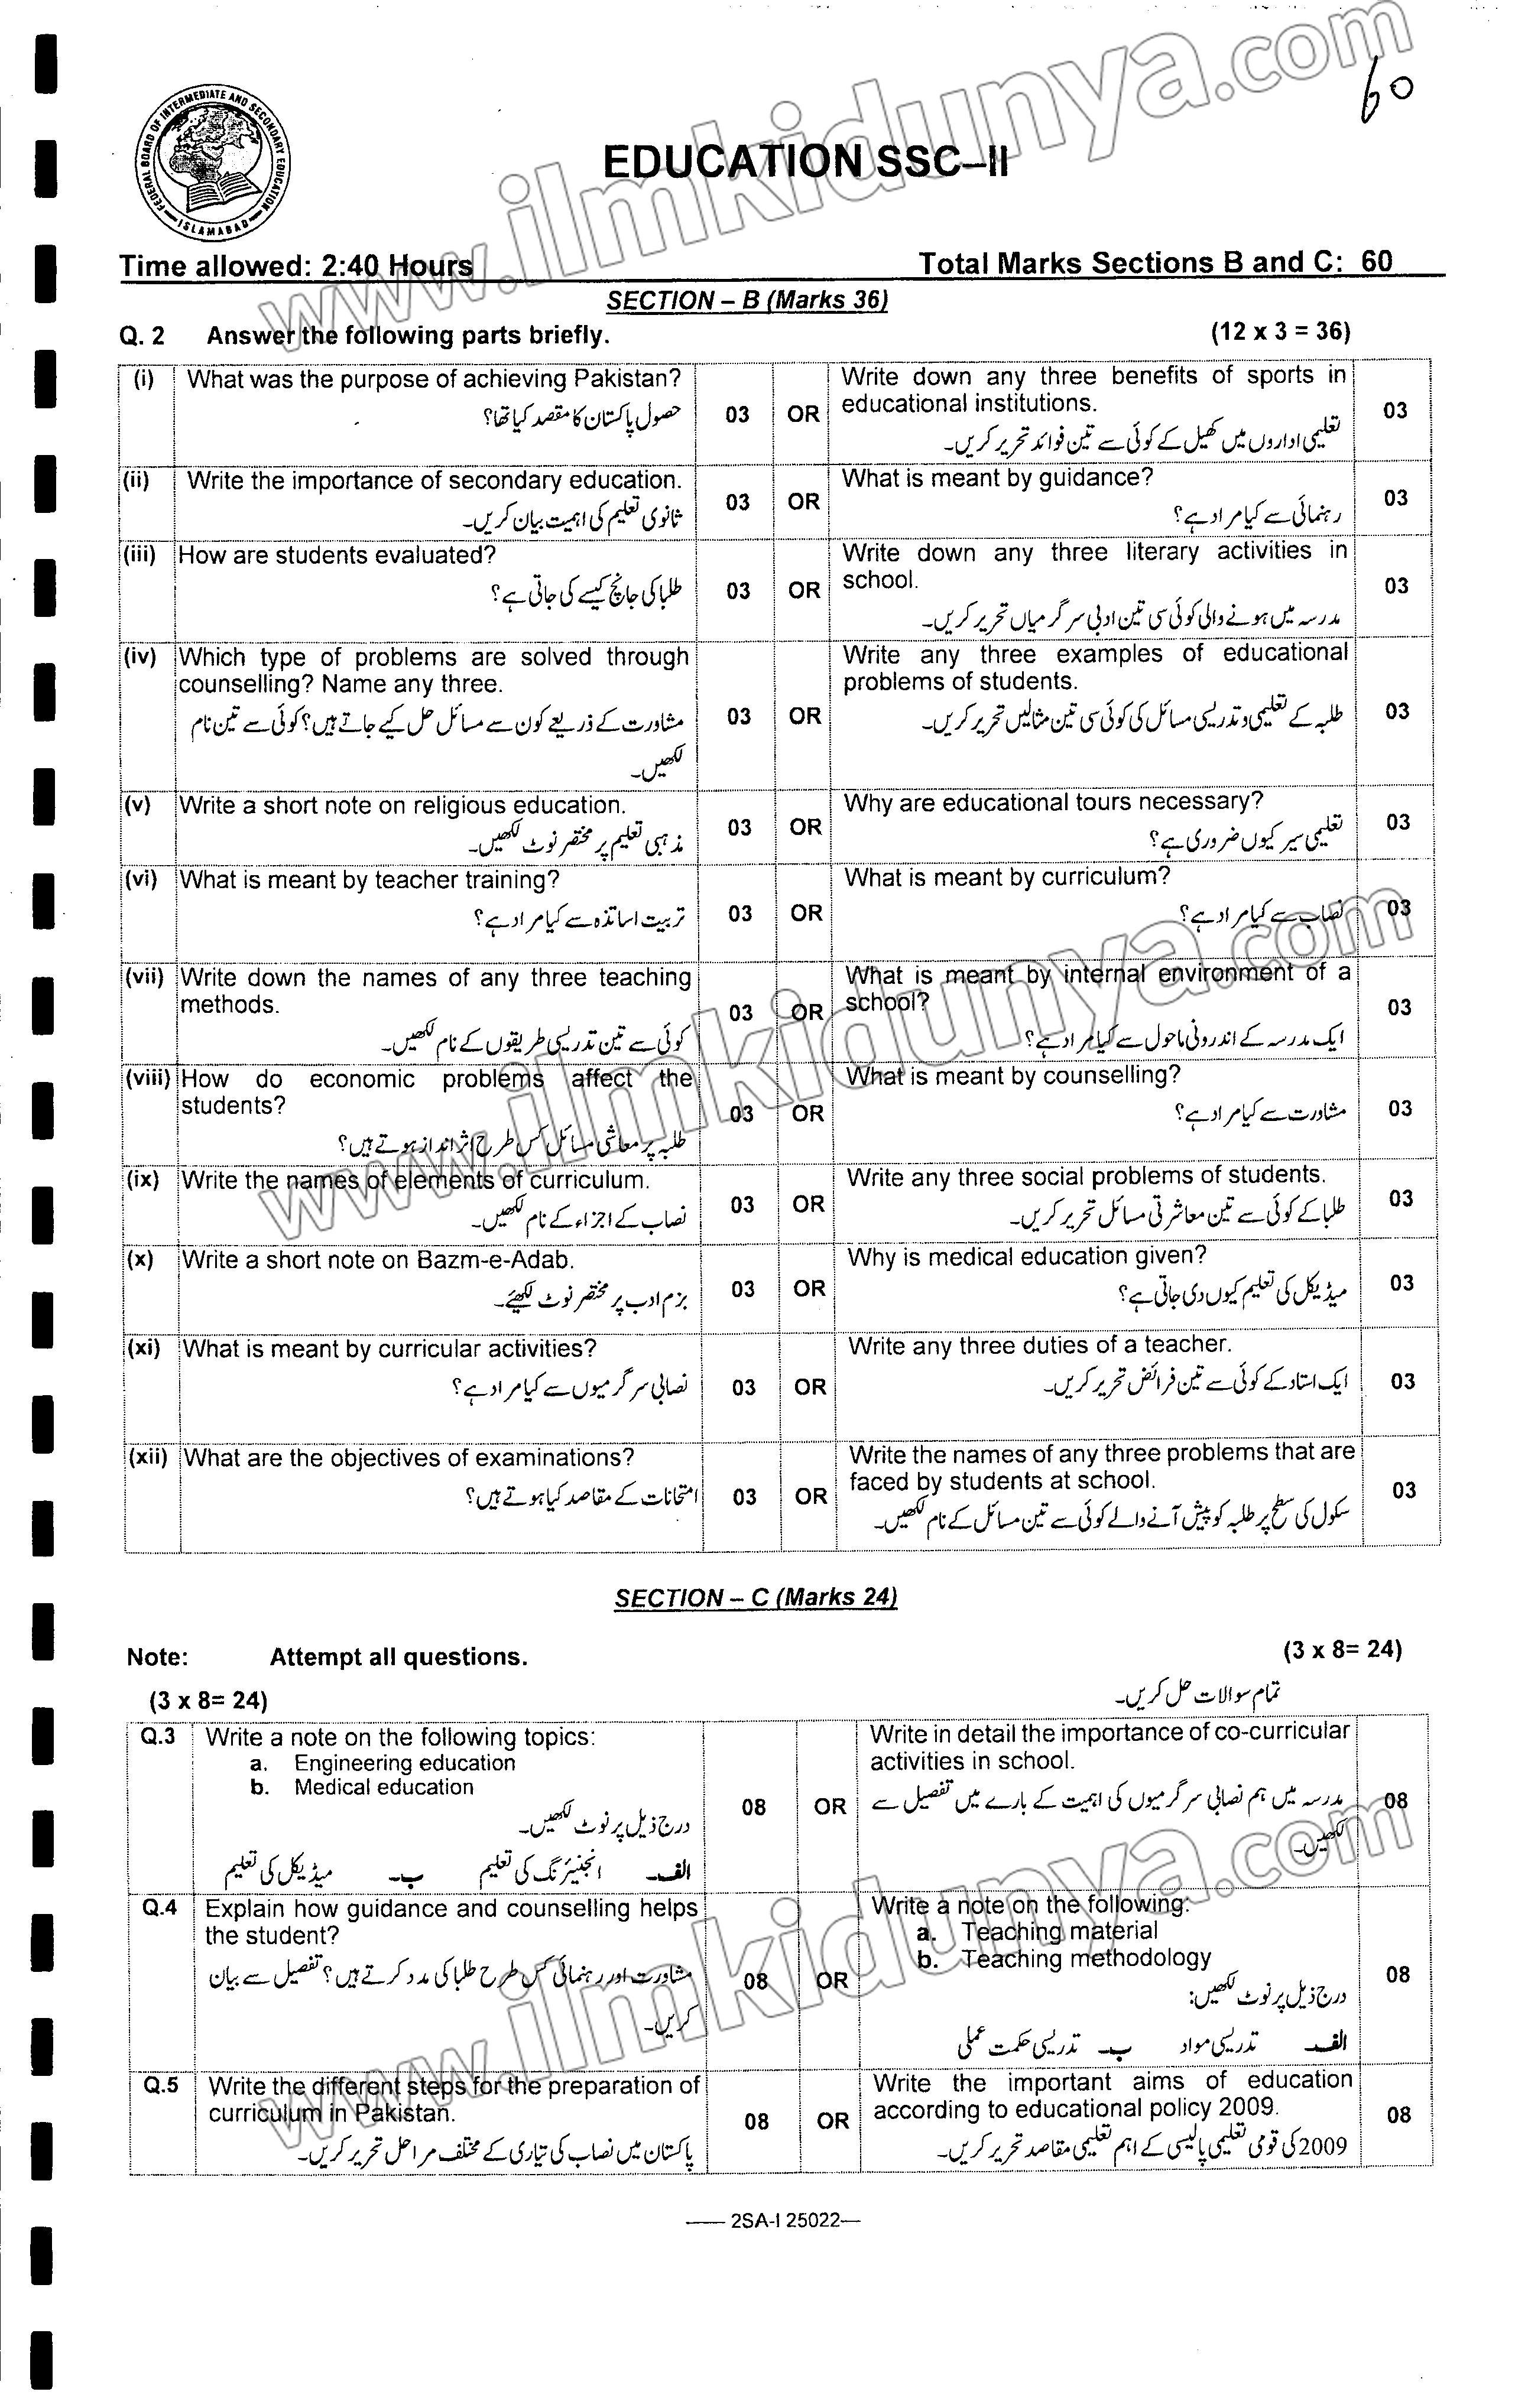 www.ilmkidunya.com
60
FEDERAL BOARD OF INTERMEDIATE AND SECONDARY EDUCATION
ISLAMABAD
EDUCATION SSC–II
Time allowed: 2:40 Hours Total Marks Sections B and C: 60
SECTION – B (Marks 36)
Q. 2 Answer the following parts briefly. (12 x 3 = 36)
(i) What was the purpose of achieving Pakistan?
حصول پاکستان کا مقصد کیا تھا؟
03 OR
Write down any three benefits of sports in
educational institutions.
تعلیمی اداروں میں کھیل کے کوئی سے تین فوائد تحریر کریں۔
03
(ii) Write the importance of secondary education.
ثانوی تعلیم کی اہمیت بیان کریں۔
03 OR
What is meant by guidance?
رہنمائی سے کیا مراد ہے؟
03
(iii) How are students evaluated?
طلبا کی جانچ کیسے کی جاتی ہے؟
03 OR
Write down any three literary activities in
school.
مدرسہ میں ہونے والی کوئی سی تین ادبی سرگرمیاں تحریر کریں۔
03
(iv) Which type of problems are solved through
counselling? Name any three.
مشاورت کے ذریعے کون سے مسائل حل کیے جاتے ہیں؟ کوئی سے تین نام
لکھیں۔
03 OR
Write any three examples of educational
problems of students.
طلبہ کے تعلیمی و تدریسی مسائل کی کوئی سی تین مثالیں تحریر کریں۔
03
(v) Write a short note on religious education.
مذہبی تعلیم پر مختصر نوٹ لکھیں۔
03 OR
Why are educational tours necessary?
تعلیمی سیر کیوں ضروری ہے؟
03
(vi) What is meant by teacher training?
تربیت اساتذہ سے کیا مراد ہے؟
03 OR
What is meant by curriculum?
نصاب سے کیا مراد ہے؟
03
www.ilmkidunya.com
(vii) Write down the names of any three teaching
methods.
کوئی سے تین تدریسی طریقوں کے نام لکھیں۔
03 OR
What is meant by internal environment of a
school?
ایک مدرسہ کے اندرونی ماحول سے کیا مراد ہے؟
03
(viii) How do economic problems affect the
students?
طلبہ پر معاشی مسائل کس طرح اثر انداز ہوتے ہیں؟
03 OR
What is meant by counselling?
مشاورت سے کیا مراد ہے؟
03
(ix) Write the names of elements of curriculum.
نصاب کے اجزاء کے نام لکھیں۔
03 OR
Write any three social problems of students.
طلبا کے کوئی سے تین معاشرتی مسائل تحریر کریں۔
03
(x) Write a short note on Bazm-e-Adab.
بزم ادب پر مختصر نوٹ لکھیئے۔
03 OR
Why is medical education given?
میڈیکل کی تعلیم کیوں دی جاتی ہے؟
03
(xi) What is meant by curricular activities?
نصابی سرگرمیوں سے کیا مراد ہے؟
03 OR
Write any three duties of a teacher.
ایک استاد کے کوئی سے تین فرائض تحریر کریں۔
03
(xii) What are the objectives of examinations?
امتحانات کے مقاصد کیا ہوتے ہیں؟
03 OR
Write the names of any three problems that are
faced by students at school.
سکول کی سطح پر طلبہ کو پیش آنے والے کوئی سے تین مسائل کے نام لکھیں۔
03
SECTION – C (Marks 24)
Note: Attempt all questions. (3 x 8= 24)
(3 x 8= 24) تمام سوالات حل کریں۔
Q.3 Write a note on the following topics:
a. Engineering education
b. Medical education
درج ذیل پر نوٹ لکھیں۔
الف۔ انجنیئرنگ کی تعلیم ب۔ میڈیکل کی تعلیم
08 OR
Write in detail the importance of co-curricular
activities in school.
مدرسہ میں ہم نصابی سرگرمیوں کی اہمیت کے بارے میں تفصیل سے
لکھیں۔
08
www.ilmkidunya.com
Q.4 Explain how guidance and counselling helps
the student?
مشاورت اور رہنمائی کس طرح طلبا کی مدد کرتے ہیں؟ تفصیل سے بیان
کریں۔
08 OR
Write a note on the following:
a. Teaching material
b. Teaching methodology
درج ذیل پر نوٹ لکھیں:
الف۔ تدریسی مواد ب۔ تدریسی حکمت عملی
08
Q.5 Write the different steps for the preparation of
curriculum in Pakistan.
پاکستان میں نصاب کی تیاری کے مختلف مراحل تحریر کریں۔
08 OR
Write the important aims of education
according to educational policy 2009.
2009 کی قومی تعلیمی پالیسی کے اہم تعلیمی مقاصد تحریر کریں۔
08
—— 2SA-I 25022—